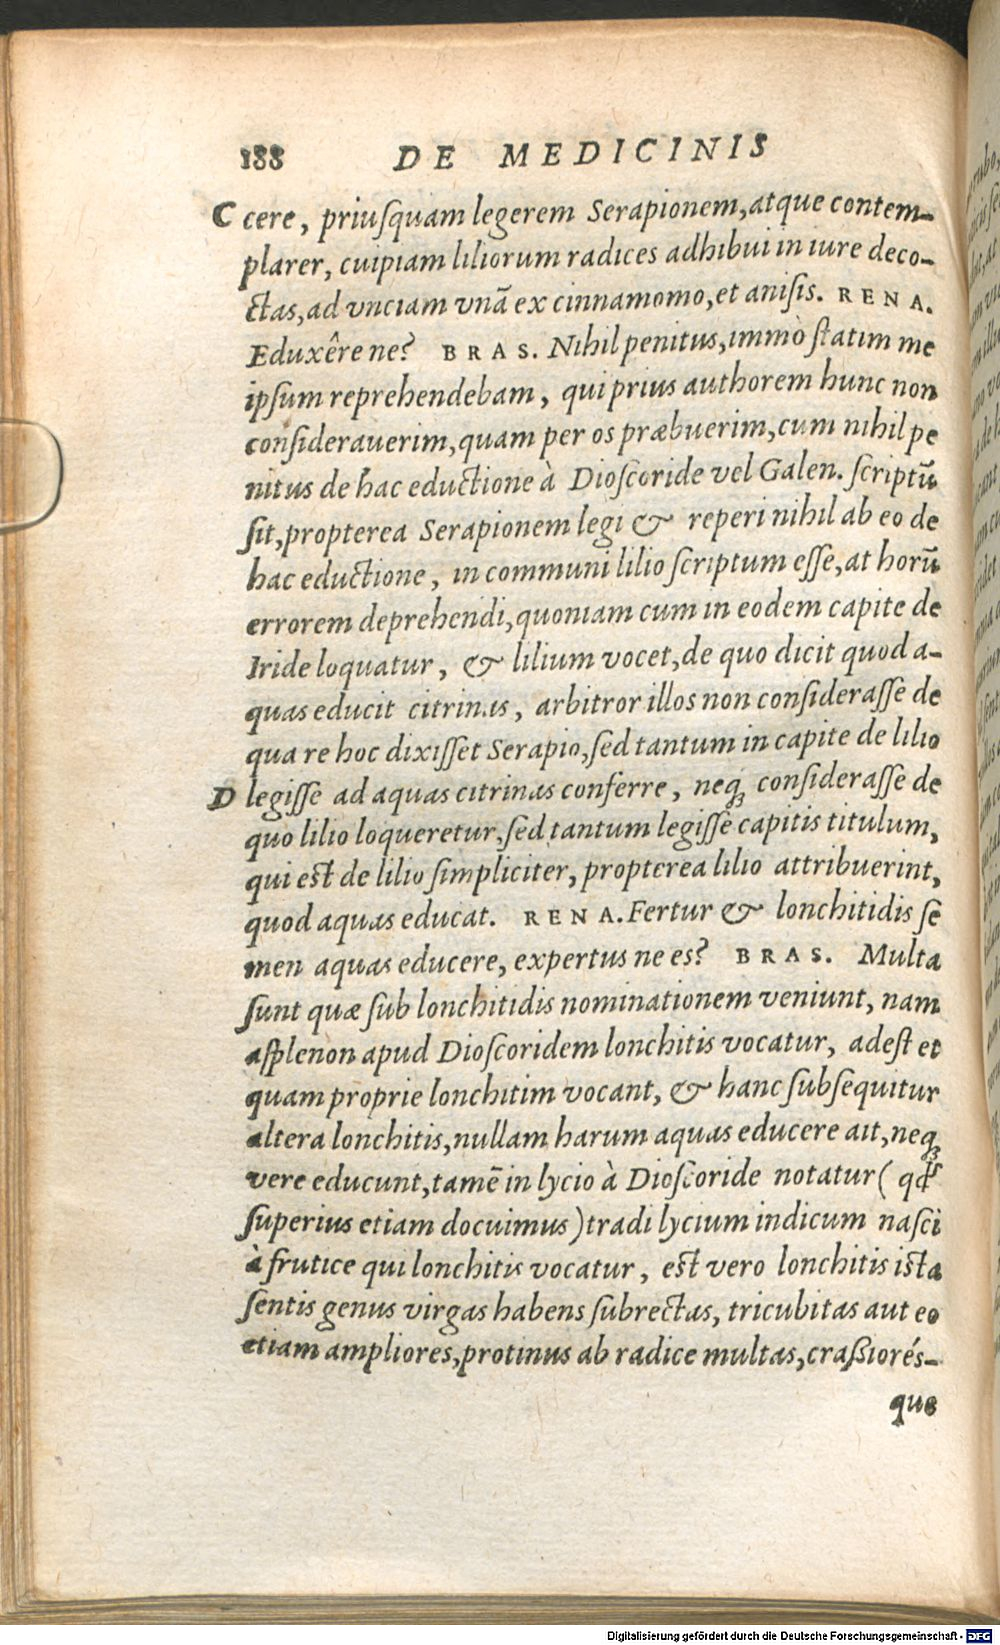 188 DE MEDICINIS
C cere, priusquam legerem Serapionem, atque contem-
plarer, cuipiam liliorum radices adhibui in iure deco-
ctas, ad vnciam vnã ex cinnamomo, et anisis. RENA.
Eduxêre ne? BRAS. Nihil penitus, immò statim me
ipsum reprehendebam, qui prius authorem hunc non
considerauerim, quam per os præbuerim, cum nihil pe
nitus de hac eductione à Dioscoride vel Galen. scriptũ
sit, propterea Serapionem legi & reperi nihil ab eo de
hac eductione, in communi lilio scriptum esse, at horũ
errorem deprehendi, quoniam cum in eodem capite de
Iride loquatur, & lilium vocet, de quo dicit quod a-
quas educit citrinas, arbitror illos non considerasse de
qua re hoc dixisset Serapio, sed tantum in capite de lilio
D legisse ad aquas citrinas conferre, neqꝫ considerasse de
quo lilio loqueretur, sed tantum legisse capitis titulum,
qui est de lilio simpliciter, propterea lilio attribuerint,
quod aquas educat. RENA. Fertur & lonchitidis se
men aquas educere, expertus ne es? BRAS. Multa
sunt quæ sub lonchitidis nominationem veniunt, nam
asplenon apud Dioscoridem lonchitis vocatur, adest et
quam proprie lonchitim vocant, & hanc subsequitur
altera lonchitis, nullam harum aquas educere ait, neqꝫ
vere educunt, tamẽ in lycio à Dioscoride notatur ( qđ
superius etiam docuimus ) tradi lycium indicum nasci
à frutice qui lonchitis vocatur, est vero lonchitis ista
sentis genus virgas habens subrectas, tricubitas aut eo
etiam ampliores, protinus ab radice multas, craßiorés-
que
Digitalisierung gefördert durch die Deutsche Forschungsgemeinschaft - DFG